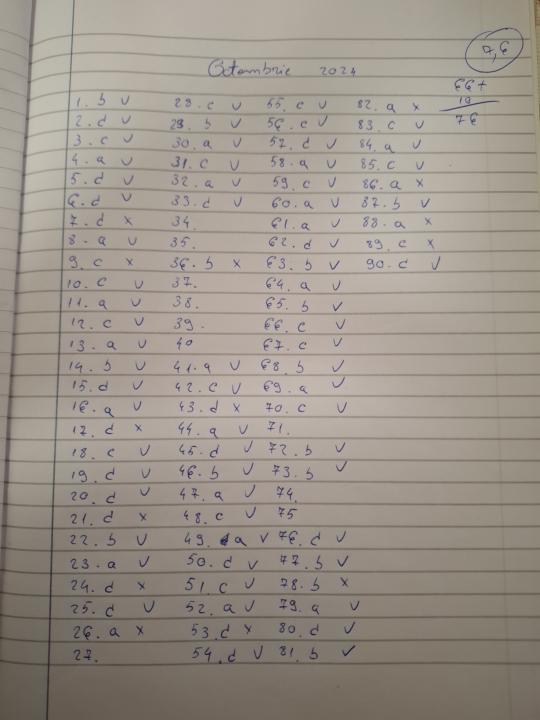 7,6
Octombrie 2024
66+
10
76
1. b v
2. d v
3. c v
4. a v
5. d v
6. d v
7. d x
8. a v
9. c x
10. c v
11. a v
12. c v
13. a v
14. b v
15. d v
16. a v
17. d x
18. c v
19. d v
20. d v
21. d x
22. b v
23. a v
24. d x
25. d v
26. a x
27.
28. c v
29. b v
30. a v
31. c v
32. a v
33. d v
34.
35.
36. b x
37.
38.
39.
40
41. a v
42. c v
43. d x
44. a v
45. d v
46. b v
47. a v
48. c v
49. a v
50. d v
51. c v
52. a v
53. d x
54. d v
55. c v
56. c v
57. d v
58. a v
59. c v
60. a v
61. a v
62. d v
63. b v
64. a v
65. b v
66. c v
67. c v
68. b v
69. a v
70. c v
71.
72. b v
73. b v
74.
75
76. d v
77. b v
78. b x
79. a v
80. d v
81. b v
82. a x
83. c v
84. a v
85. c v
86. a x
87. b v
88. a x
89. c x
90. d v